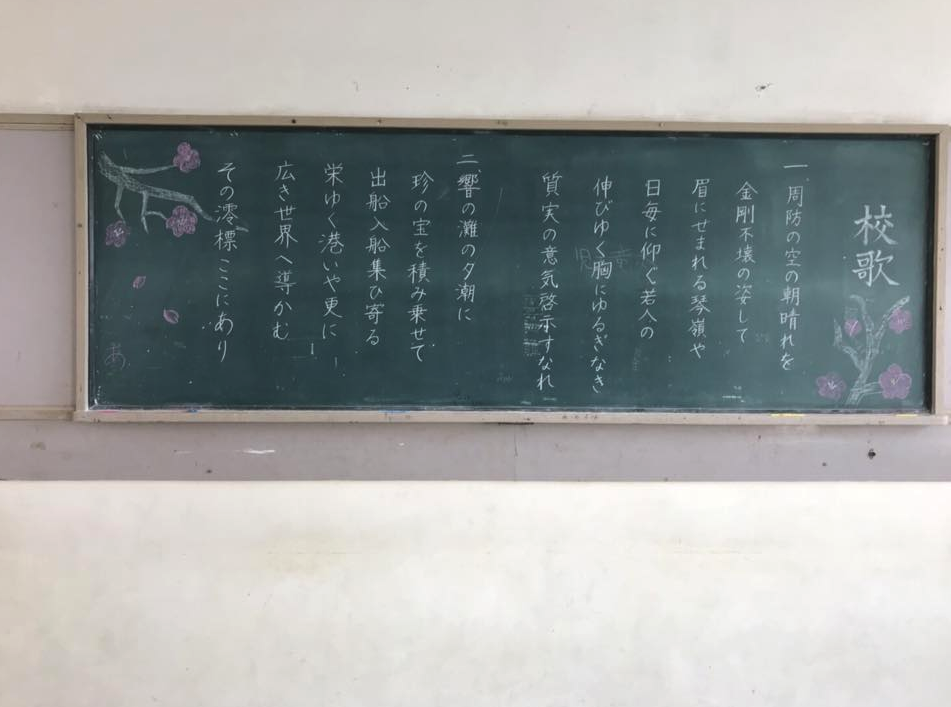 校歌
一、周防の空の朝晴れを
金剛不壊の姿して
眉にせまれる琴嶺や
日毎に仰ぐ若人の
伸びゆく胸にゆるぎなき
質実の意気啓示すなれ
二、響の灘の夕潮に
珍の宝を積み乗せて
出船入船集ひ寄る
栄ゆく港いや更に
広き世界へ導かむ
その澪標ここにあり
あ